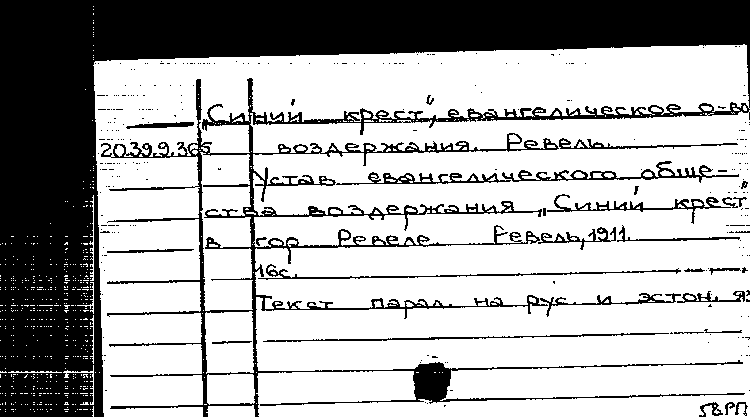 „Синий крест“, евангелическое о-во
20.39.9.365 воздержания. Ревель.
Устав евангелического обще-
ства воздержания „Синий крест“
в гор Ревеле. Ревель, 1911.
16с.
Текст парал. на рус. и эстон. яз
58.РП